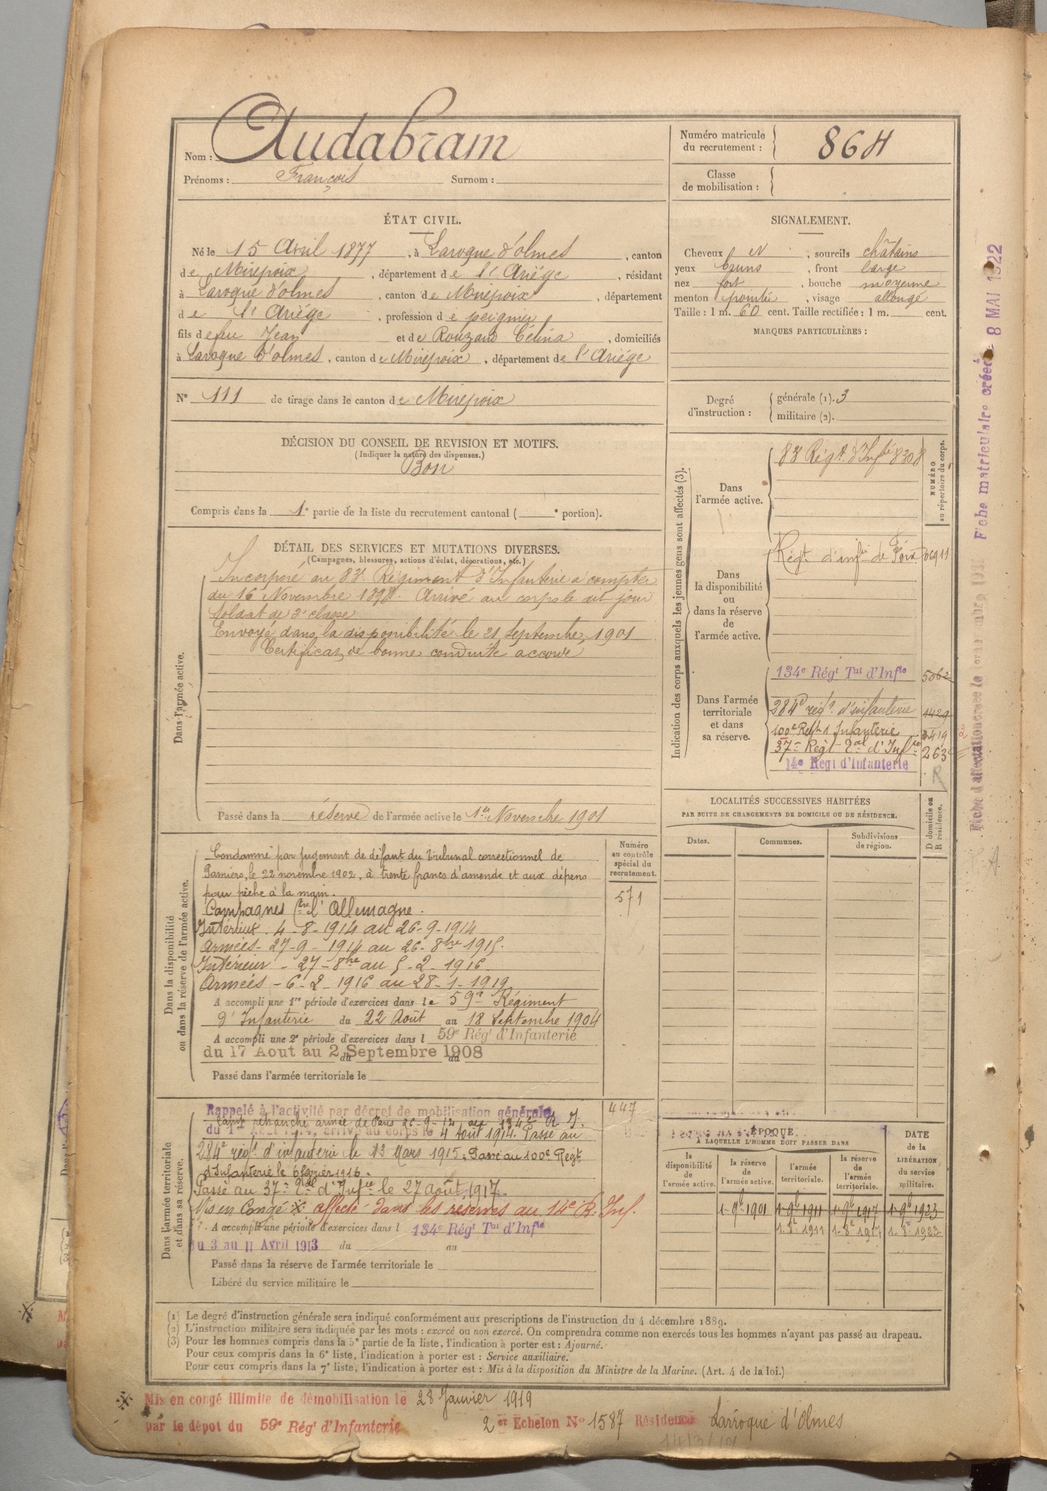 Nom : Audabram
Prénoms : François Surnom :
Numéro matricule
du recrutement : 864
Classe
de mobilisation :
ÉTAT CIVIL.
Né le 15 Avril 1877, à Laroque d'olmes, canton
de Mirepoix, département de l'Ariége, résidant
à Laroque d'olmes, canton de Mirepoix, département
de l'Ariége, profession de peigneur
fils de feu Jean et de Rouzaud Célina, domiciliés
à Laroque d'olmes, canton de Mirepoix, département de l'Ariége
N° 111 de tirage dans le canton de Mirepoix
SIGNALEMENT.
Cheveux N, sourcils châtains
yeux bruns, front large
nez fort, bouche moyenne
menton pointu, visage allongé
Taille : 1 m. 60 cent. Taille rectifiée : 1 m. cent.
MARQUES PARTICULIÈRES :
Degré
d'instruction :
générale (1). 3
militaire (2).
DÉCISION DU CONSEIL DE REVISION ET MOTIFS.
(Indiquer la nature des dispenses.)
Bon
Compris dans la 1e partie de la liste du recrutement cantonal ( e portion).
DÉTAIL DES SERVICES ET MUTATIONS DIVERSES.
(Campagnes, blessures, actions d'éclat, décorations, etc.)
Dans l'armée active.
Incorporé au 83e Régiment d'Infanterie à compter
du 16 Novembre 1898. Arrivé au corps le dit jour
Soldat de 2e classe
Envoyé dans la disponibilité le 21 Septembre 1901
Certificat de bonne conduite accordé
Passé dans la réserve de l'armée active le 1er Novembre 1901
Indication des corps auxquels les jeunes gens sont affectés (3).
NUMÉRO
au répertoire du corps.
Dans
l'armée active.
83e Régt d'Infie 8308
Dans
la disponibilité
ou
dans la réserve
de
l'armée active.
Régt d'infie de Foix
Dans l'armée
territoriale
et dans
sa réserve.
134e Régt Tal d'Infie
284e régt d'infanterie
100e Régt d'Infanterie 3419
37e Régt d'Infie 263
14e Régt d'Infanterie
R
LOCALITÉS SUCCESSIVES HABITÉES
PAR SUITE DE CHANGEMENTS DE DOMICILE OU DE RÉSIDENCE.
D domicile ou
R résidence.
Dates. Communes. Subdivisions
de région.
Dans la disponibilité
ou dans la réserve de l'armée active.
Numéro
au contrôle
spécial du
recrutement.
571
Condamné par jugement de défaut du tribunal correctionnel de
Pamiers, le 22 novembre 1902, à trente francs d'amende et aux dépens
pour pêche à la main.
Campagnes Ctre l'Allemagne.
Intérieur 4-8-1914 au 26-9-1914
Armées - 27-9-1914 au 26-8bre 1915
Intérieur - 27-8bre au 5-2-1916
Armées - 6-2-1916 au 28-1-1919
A accompli une 1re période d'exercices dans le 59e Régiment
d'Infanterie du 22 Août au 18 Septembre 1904
A accompli une 2e période d'exercices dans l 59e Régt d'Infanterie
du 17 Aout au 2 Septembre 1908
Passé dans l'armée territoriale le
Dans l'armée territoriale
et dans sa réserve.
447
Rappelé à l'activité par décret de mobilisation générale
arrivé au corps le 4 Août 1914. Passé au
284e régt d'infanterie le 13 Mars 1915. Passé au 100e Régt
d'Infanterie le 6 février 1916.
Passé au 37e d'Infie le 27 août 1917.
Mis en congé ※ affecté dans les réserves au 14e R. Inf.
A accompli une période d'exercices dans l 134e Régt Tal d'Infie
du 3 au 11 Avril 1913 du au
Passé dans la réserve de l'armée territoriale le
Libéré du service militaire le
ÉPOQUE
À LAQUELLE L'HOMME DOIT PASSER DANS
DATE
de la
LIBÉRATION
du service
militaire.
la
disponibilité
de
l'armée active.
la réserve
de
l'armée active.
l'armée
territoriale.
la réserve
de
l'armée
territoriale.
1-9b 1901 1-9b 1911 1-9b 1917 1-9b 1923
(1) Le degré d'instruction générale sera indiqué conformément aux prescriptions de l'instruction du 4 décembre 1889.
(2) L'instruction militaire sera indiquée par les mots : exercé ou non exercé. On comprendra comme non exercés tous les hommes n'ayant pas passé au drapeau.
(3) Pour les hommes compris dans la 5e partie de la liste, l'indication à porter est : Ajourné.
Pour ceux compris dans la 6e liste, l'indication à porter est : Service auxiliaire.
Pour ceux compris dans la 7e liste, l'indication à porter est : Mis à la disposition du Ministre de la Marine. (Art. 4 de la loi.)
※ Mis en congé illimité de démobilisation le 28 Janvier 1919
par le dépot du 59e Régt d'Infanterie 2e Echelon N° 1587 Résidence Larroque d'Olmes
Fiche matriculaire créée 8 MAI 1922